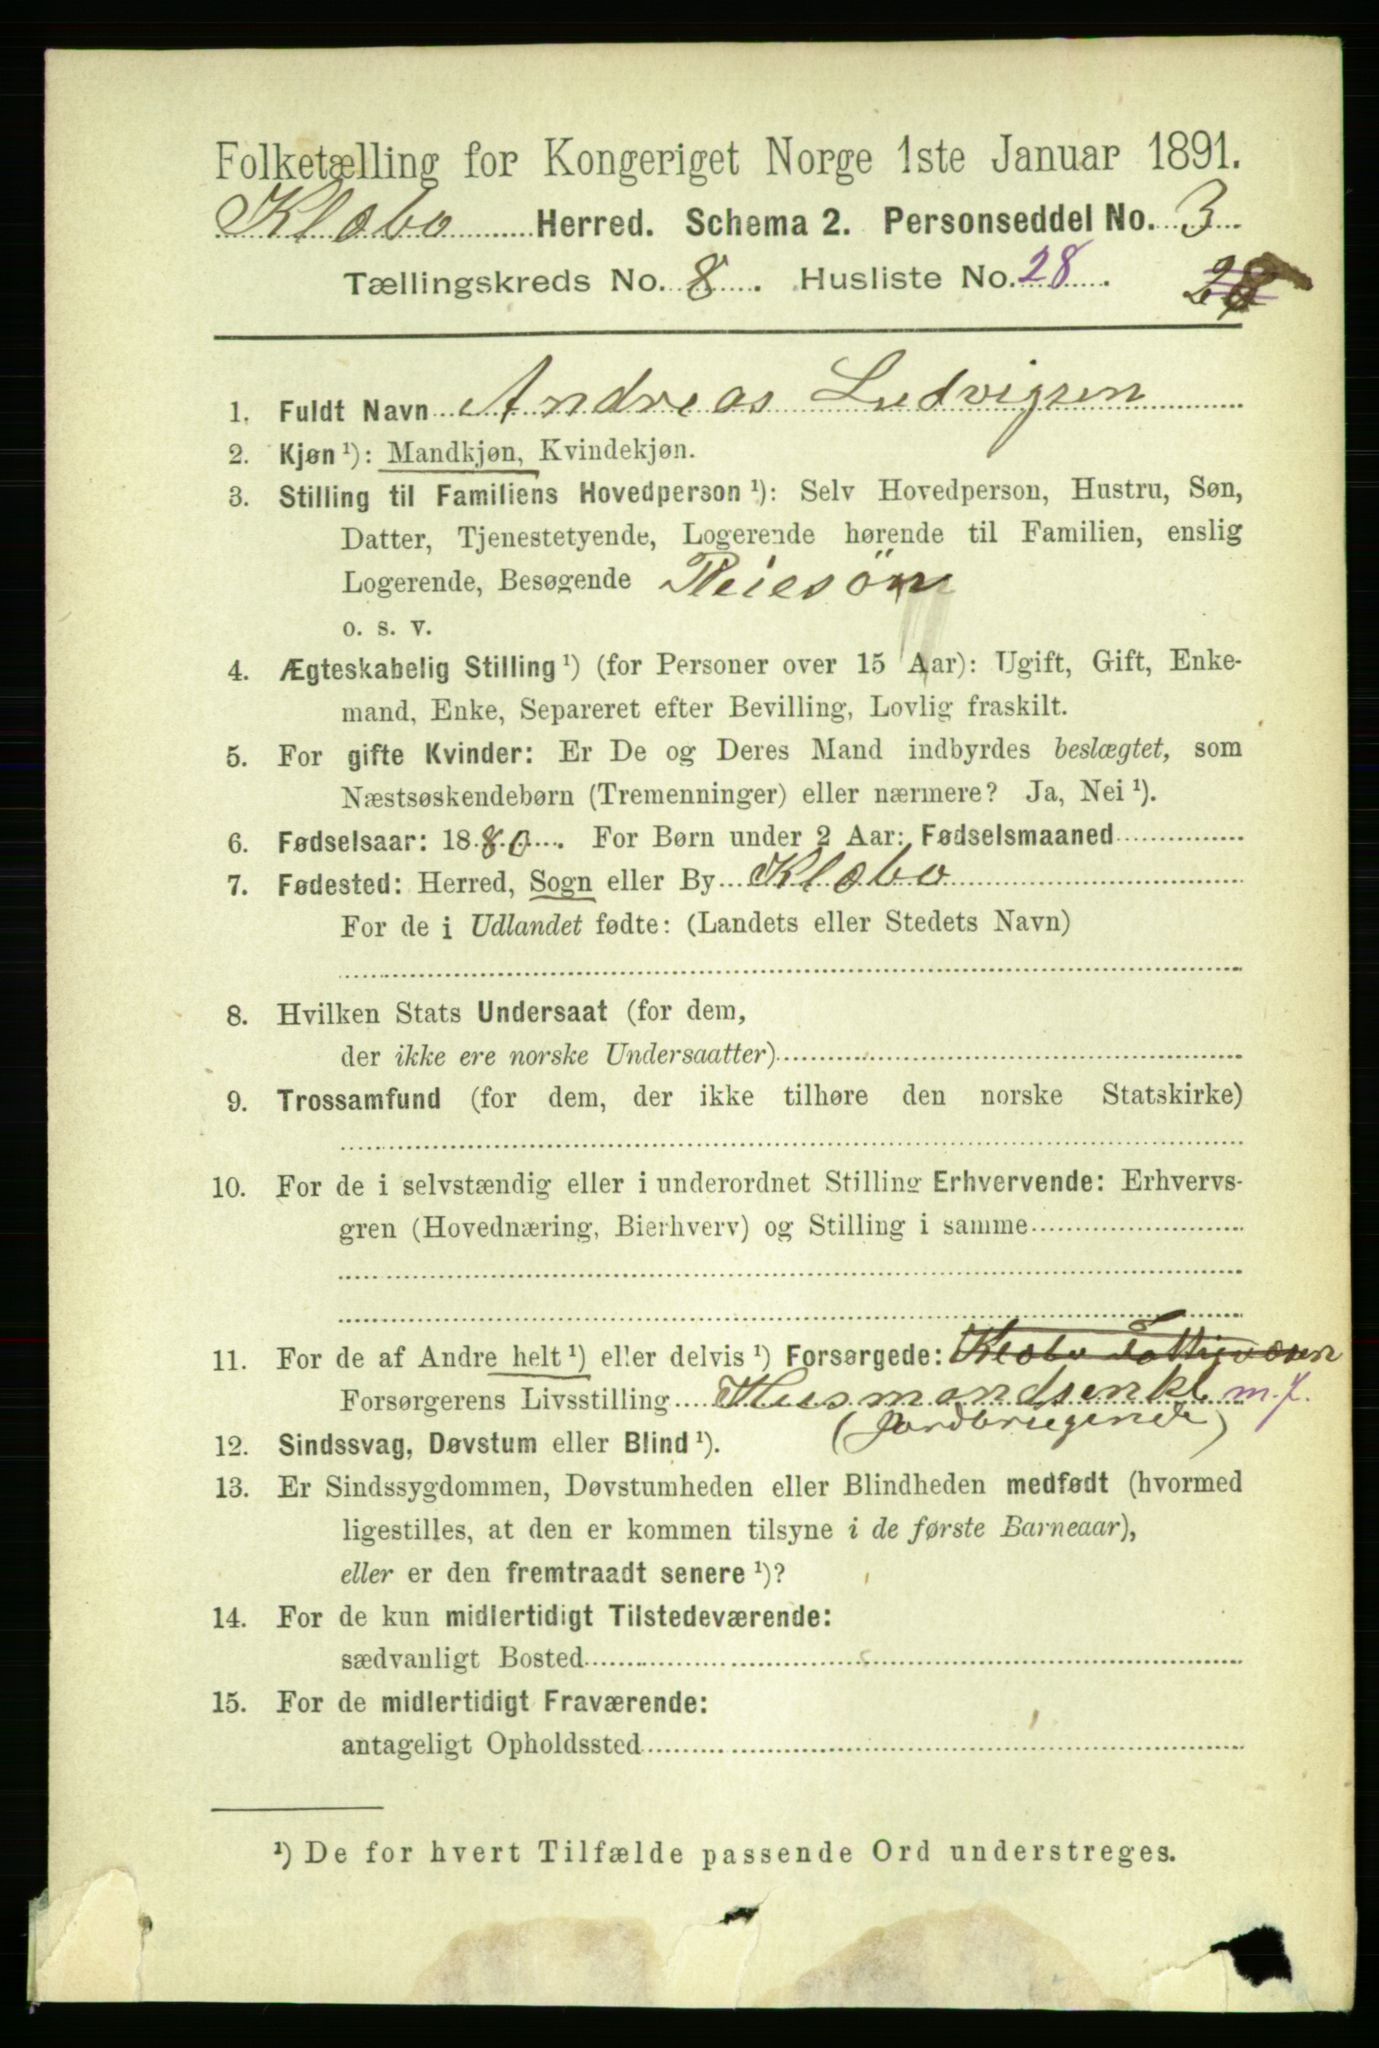 Folketælling for Kongeriget Norge 1ste Januar 1891.
Klæbo Herred. Schema 2. Personseddel No. 3
Tællingskreds No. 8. Husliste No. 28. 28
1. Fuldt Navn Andreas Ludvigsen
2. Kjøn ¹): Mandkjøn, Kvindekjøn.
3. Stilling til Familiens Hovedperson ¹): Selv Hovedperson, Hustru, Søn,
Datter, Tjenestetyende, Logerende hørende til Familien, enslig
Logerende, Besøgende Pleiesön
o. s. v.
4. Ægteskabelig Stilling ¹) (for Personer over 15 Aar): Ugift, Gift, Enke-
mand, Enke, Separeret efter Bevilling, Lovlig fraskilt.
5. For gifte Kvinder: Er De og Deres Mand indbyrdes beslægtet, som
Næstsøskendebørn (Tremenninger) eller nærmere? Ja, Nei ¹).
6. Fødselsaar: 1880. For Børn under 2 Aar: Fødselsmaaned
7. Fødested: Herred, Sogn eller By Klæbo
For de i Udlandet fødte: (Landets eller Stedets Navn)
8. Hvilken Stats Undersaat (for dem,
der ikke ere norske Undersaatter)
9. Trossamfund (for dem, der ikke tilhøre den norske Statskirke)
10. For de i selvstændig eller i underordnet Stilling Erhvervende: Erhvervs-
gren (Hovednæring, Bierhverv) og Stilling i samme
11. For de af Andre helt ¹) eller delvis ¹) Forsørgede: Klæbo Fattigvæsen
Forsørgerens Livsstilling Husmandsenke m. J.
(Jordbrugende)
12. Sindssvag, Døvstum eller Blind ¹).
13. Er Sindssygdommen, Døvstumheden eller Blindheden medfødt (hvormed
ligestilles, at den er kommen tilsyne i de første Barneaar),
eller er den fremtraadt senere ¹)?
14. For de kun midlertidigt Tilstedeværende:
sædvanligt Bosted
15. For de midlertidigt Fraværende:
antageligt Opholdssted
¹) De for hvert Tilfælde passende Ord understreges.